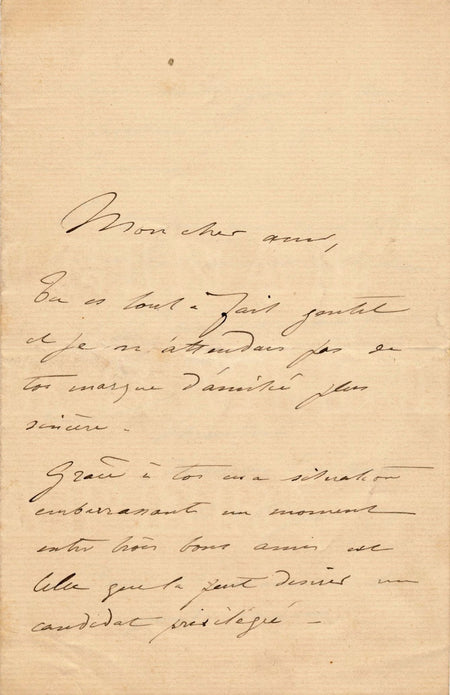 Mon cher ami,
Tu es tout à fait gentil
et je n'attendais pas de
toi marque d'amitié plus
sincère.
Grâce à toi ma situation
embarrassante un moment
entre trois bons amis est
telle que la peut désirer un
candidat privilégié —